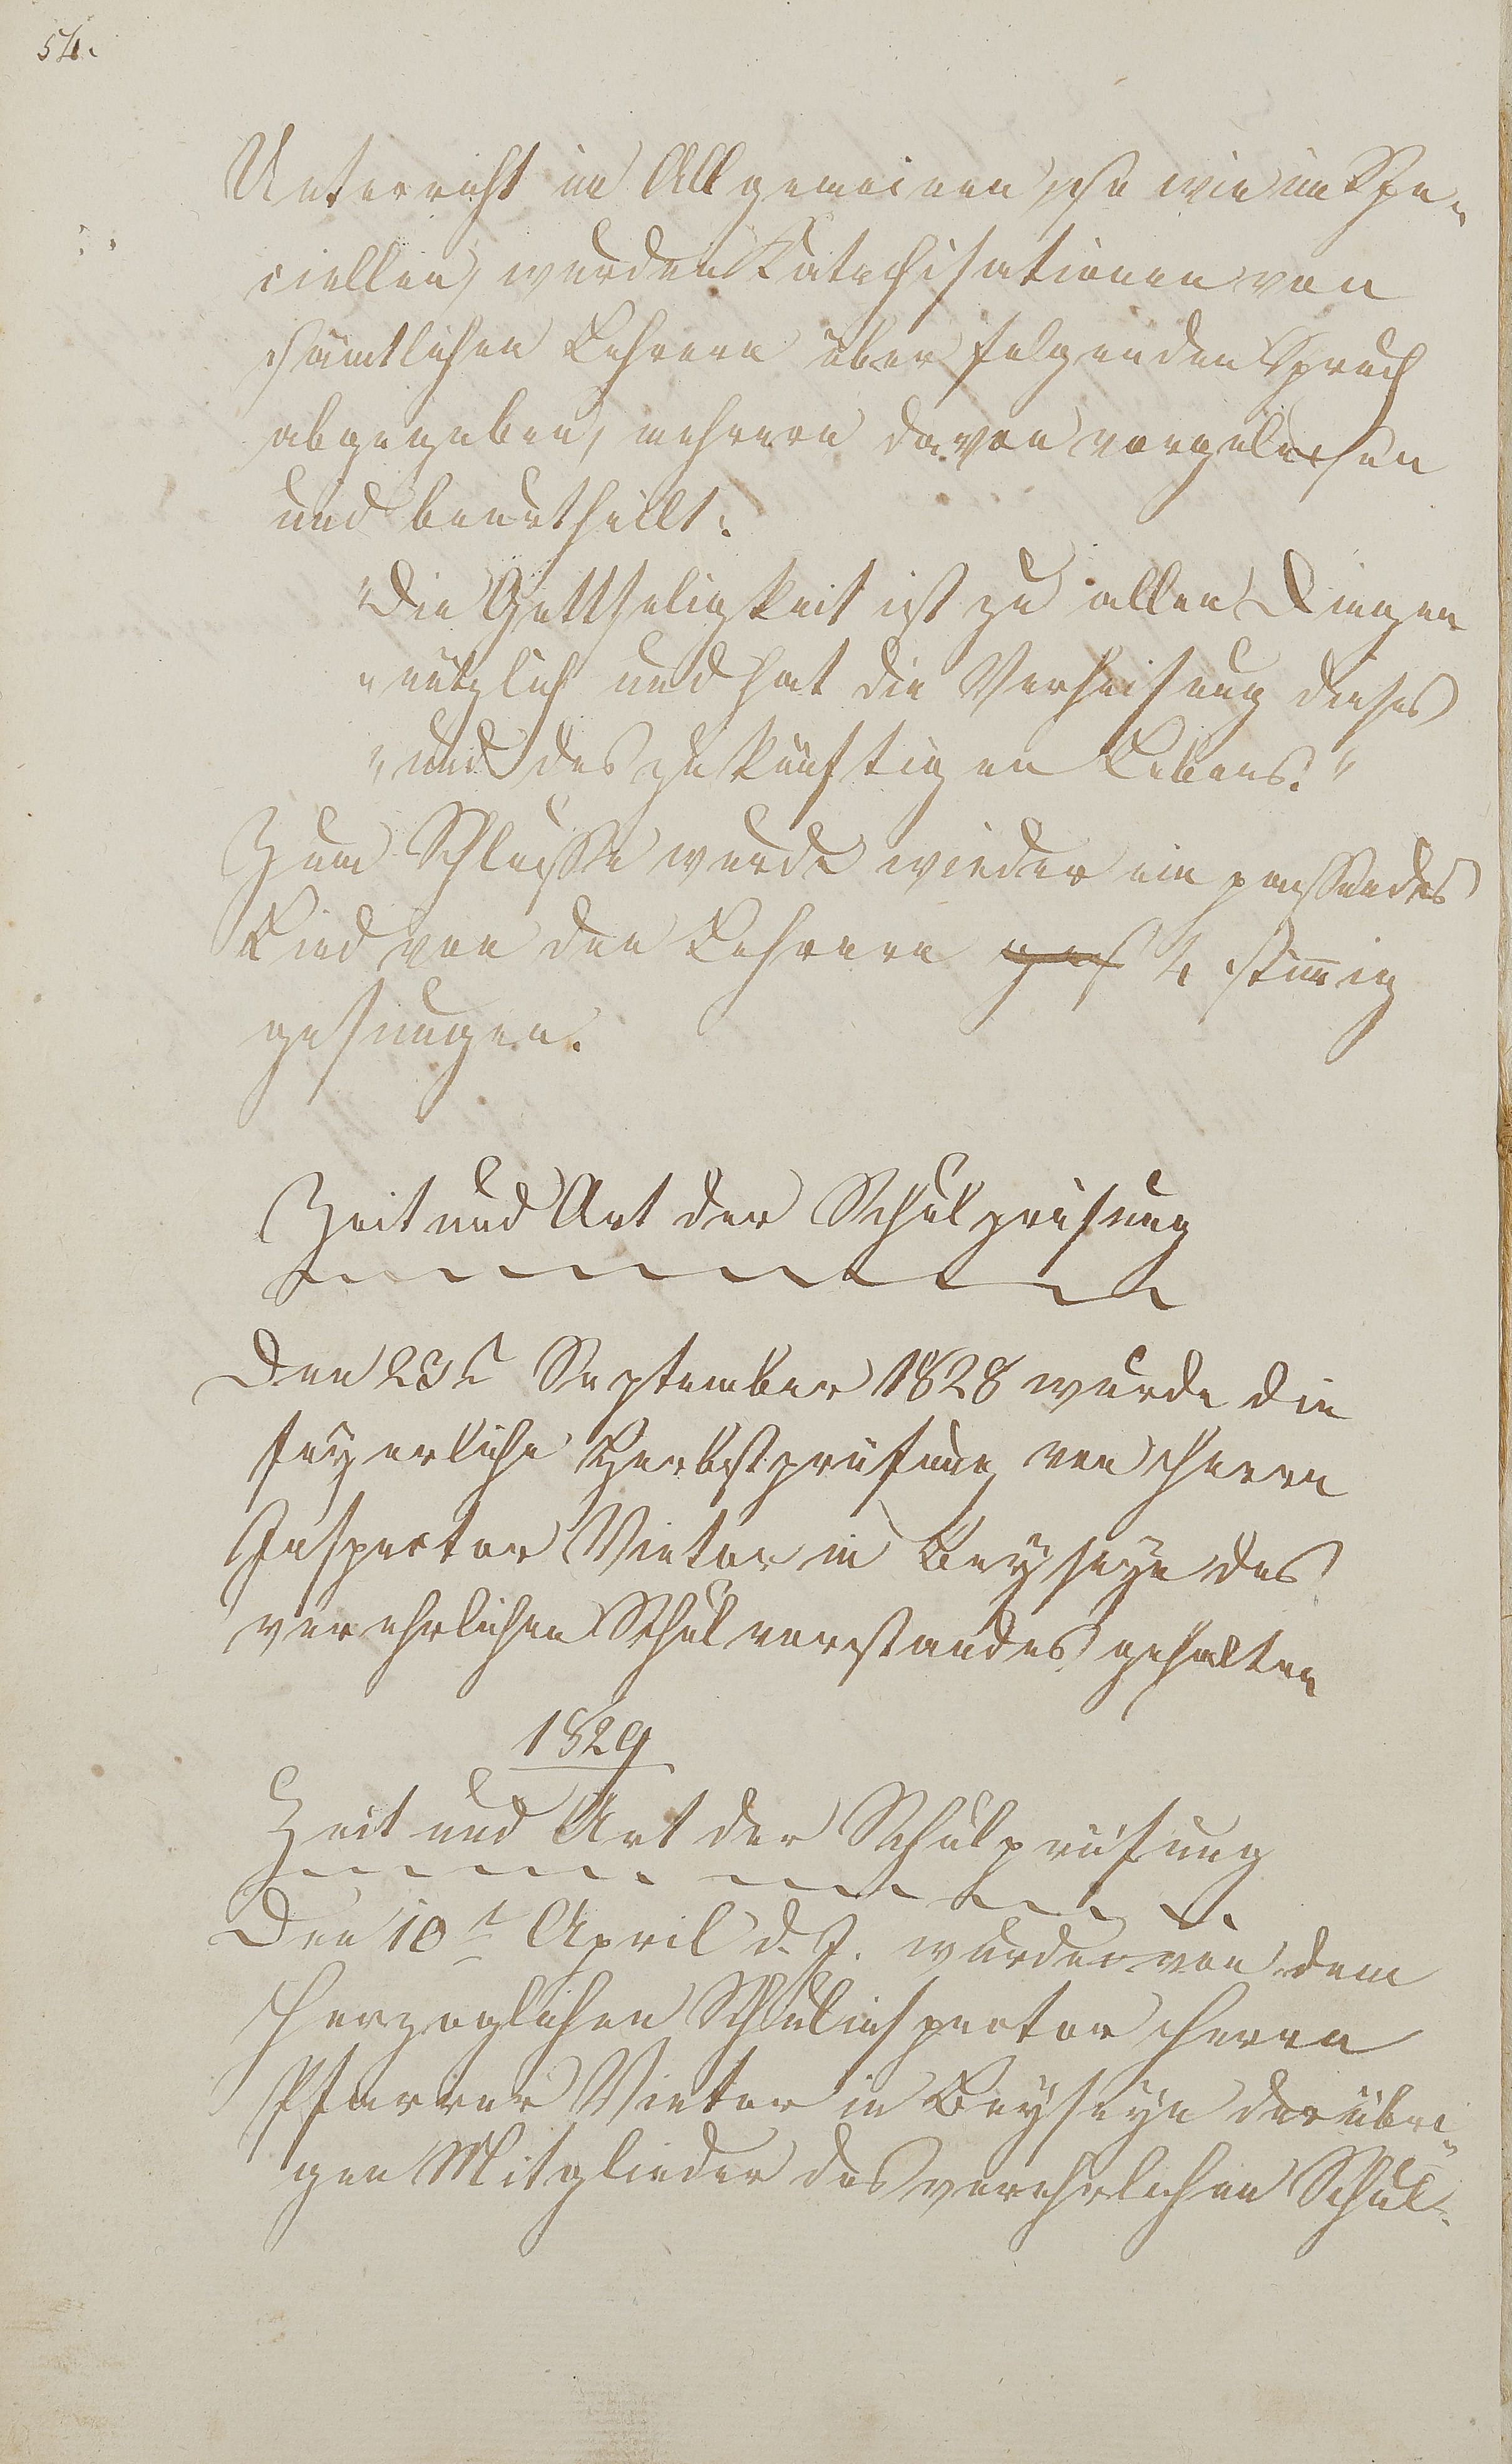 54.
Unterricht im Allgemeinen, so wie im Spe-
ciellen, wurden Katechisationen von
sämtlichen Lehrern über folgenden Spruch
abgegeben, mehrere davon vorgelesen
und beurtheilt:
"Die Gottseligkeit ist zu allen Dingen
"nützlich und hat die Verheisung dieses
"und des zukünftigen Lebens."
Zum Schlusse wurde wieder ein passendes
Lied von den Lehrern ges 4 stimig
gesungen.
Zeit und Art der Schulprüfung
Den 23t September 1828 wurde die
feyerliche Herbstprüfung von Herrn
Inspector Vietor in Beyseyn des
verehrlichen Schulvorstandes gehalten
1829
Zeit und Art der Schulprüfung
Den 10t April d. J. wurde von dem
Herzoglichen Schulinspector Herrn
Pfarrer Vietor in Beyseyn der übri-
gen Mitglieder des verehrlichen Schul-